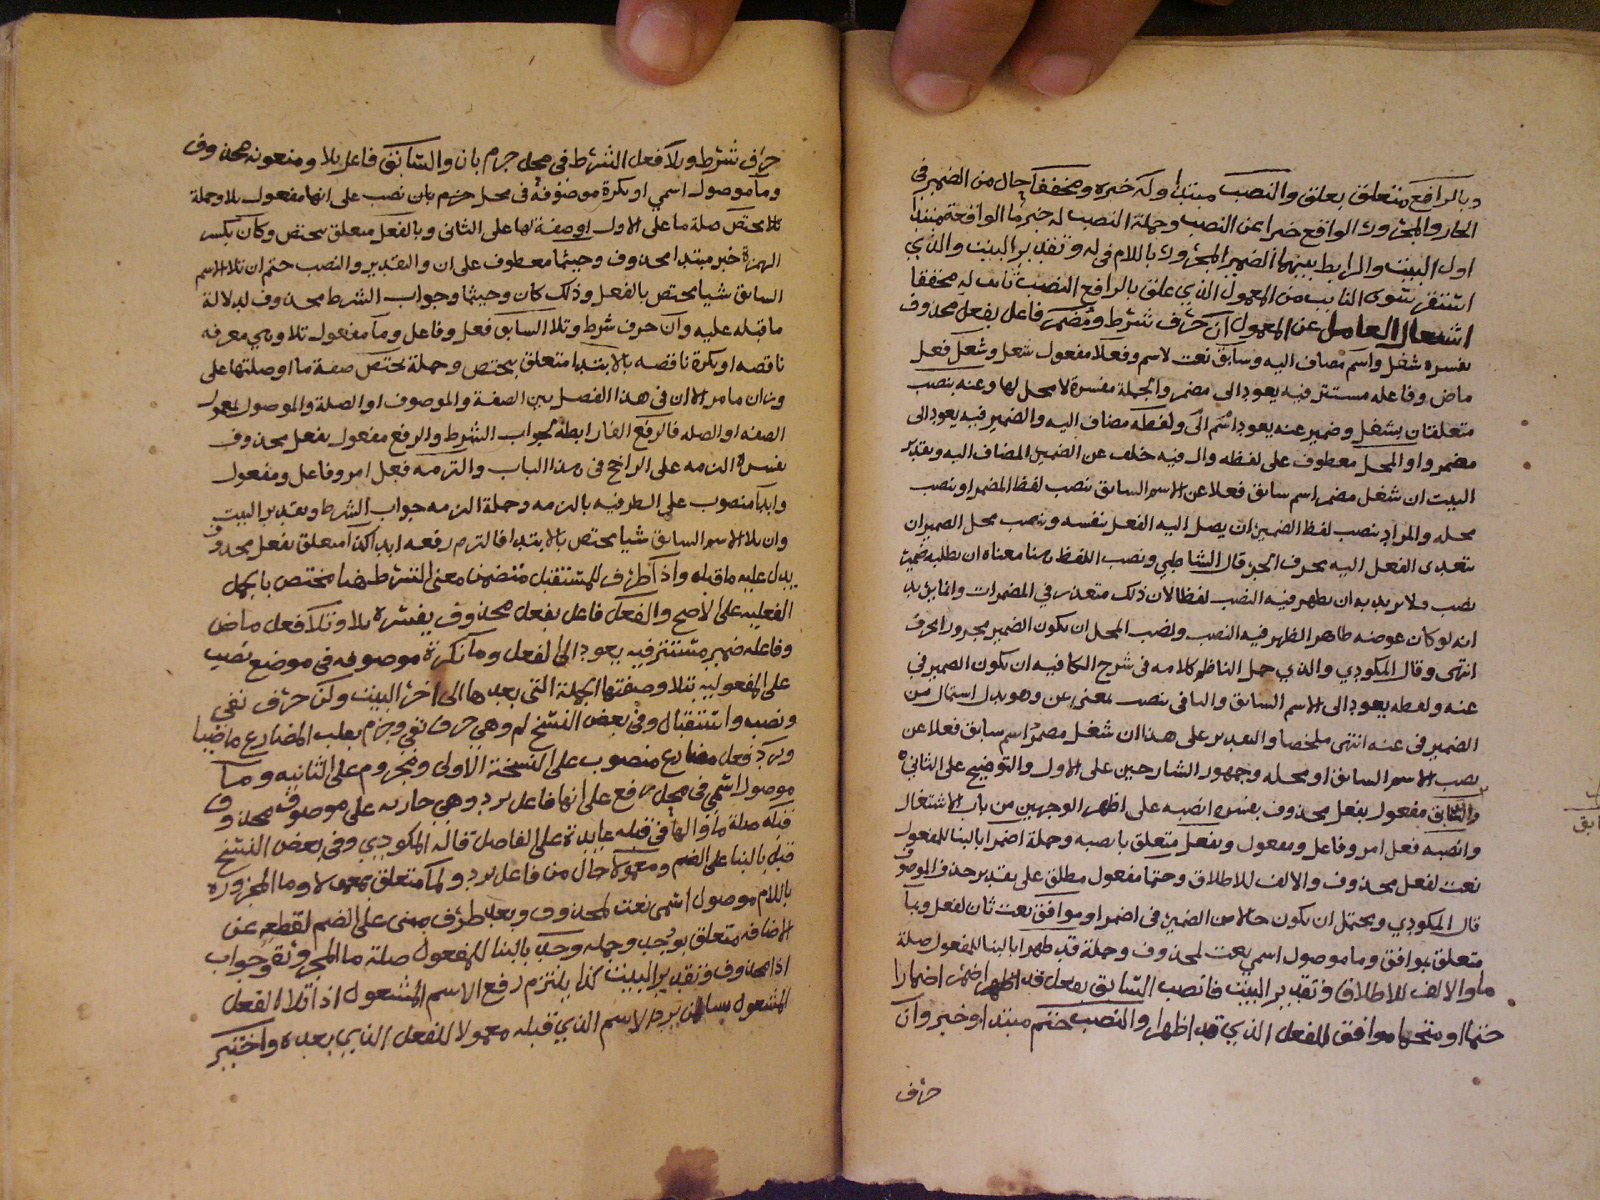 وبالرافع متعلق بعلق والنصب مبتدا وله خبره ومخففا حال من الضمير في
الجار والمجرور الواقع خبرا عن النصب وجملة النصب له خبر ما الواقعة مبتدا
اول البيت والرابط بينهما الضمير المجرور باللام في له وتقدير البيت والذي
استقر سوى النايب من المعمول الذي علق بالرافع النصب ثابت له محققا
اشتغال العامل عن المعمول ان حرف شرط ومضمر فاعل بفعل محذوف
يفسره شغل واسم مضاف اليه وسابق نعت لاسم وفعلا مفعول شغل وشغل فعل
ماض وفاعله مستتر فيه يعود الى مضمر والجملة مفسرة لا محل لها وعنه بنصب
متعلقان بشغل وضمير عنه يعود الى اسم ولفظه مضاف اليه والضمير فيه يعود الى
مضمر واو المحل معطوف على لفظه وال فيه خلف عن الضمير المضاف اليه وتقدير
البيت ان شغل مضمر اسم سابق فعلا عن الاسم السابق بنصب لفظ المضمر او نصب
محله والمراد بنصب لفظ الضمير ان يصل اليه الفعل بنفسه وبنصب محل الضمير ان
يتعدى الفعل اليه بحرف الجر قال الشاطبي ونصب اللفظ هنا معناه ان يطلبه ضمير
نصب ولا يريد به ان يظهر فيه النصب لفظا لان ذلك متعذر في المضمرات وانما يريد
انه لو كان عوضه ظاهر الظهر فيه النصب ونصب المحل ان يكون الضمير مجرور بحرف
انتهى وقال المكودي والذي حمل الناظم كلامه في شرح الكافيه ان يكون الضمير في
عنه ولفظه يعود الى الاسم السابق والبا في بنصب بمعنى عن وهو بدل اشتمال من
الضمير في عنه انتهى ملخصا والتقدير على هذا ان شغل مضمر اسم سابق فعلا عن
نصب الاسم السابق او محله وجمهور الشارحين على الاول والتوضيح على الثاني
والسابق مفعول بفعل محذوف يفسره انصبه على اظهر الوجهين من باب الاشتغال
وانصبه فعل امر وفاعل ومفعول وبفعل متعلق بانصبه وجملة اضمرا بالبنا للمفعول
نعت لفعل محذوف والالف للاطلاق وحتما مفعول مطلق على تقدير حذف الموصوف
قال المكودي ويحتمل ان يكون حالا من الضمير في اضمرا وموافق نعت ثان لفعل وبما
متعلق بوافق وما موصول اسمي نعت لمحذوف وجملة قد ظهرا بالبنا للمفعول صلة
ما والالف للاطلاق وتقدير البيت فانصب السابق بفعل قد اظهر اضمر اضمارا
حتما او متحما موافق للفعل الذي قد اظهرا والنصب حتم مبتدا وخبر وان
حرف
حرف شرط وتلا فعل الشرط في محل جزم بان والسابق فاعل بتلا ومنعوته محذوف
وما موصول اسمي او نكرة موصوفة في محل جزم بان نصب على انها مفعول بتلا وجملة
يختص صلة ما على الاول او صفة لها على الثاني وبالفعل متعلق بيختص وكان بكسر
الهمزة خبر مبتدا محذوف وحيثما معطوف على ان والتقدير والنصب حتم ان تلا الاسم
السابق شيا يختص بالفعل وذلك كان وحيثما وجواب الشرط محذوف لدلالة
ما قبله عليه وان حرف شرط وتلا السابق فعل وفاعل وما مفعول تلا وهي معرفه
ناقصه او نكرة ناقصه بالابتدا متعلق بيختص وجملة يختص صفة ما او صلتها على
وزان ما مر الا ان في هذا الفصل بين الصفة والموصوف او الصلة والموصول بمعمول
الصفه او الصله فالرفع الفا رابطة لجواب الشرط والرفع مفعول بفعل محذوف
يفسره التزمه على الراجح في هذا الباب والتزمه فعل امر وفاعل ومفعول
وابدا منصوب على الظرفيه بالتزمه وجملة التزمه جواب الشرط وتقدير البيت
وان تلا الاسم السابق شيا يختص بالابتدا فالتزم رفعه ابدا كذا متعلق بفعل محذوف
يدل عليه ما قبله واذا ظرف للمستقبل متضمن معنى الشرط هنا مختص بالجمل
الفعليه على الاصح والفعل فاعل بفعل محذوف يفسره تلا وتلا فعل ماض
وفاعله ضمير مستتر فيه يعود الى الفعل وما نكرة موصوفه في موضع نصب
على المفعوليه بتلا وصفتها الجملة التي بعدها الى اخر البيت ولن حرف نفي
ونصب واستقبال وفي بعض النسخ لم وهي حرف نفي وجزم يقلب المضارع ماضيا
ويرد فعل مضارع منصوب على النسخة الاولى ومجزوم على الثانيه وما
موصول اسمي في محل رفع على انها فاعل يرد وهي جاريه على موصوف محذوف
قبله صلة ما والها في قبله عايدة على الفاصل قاله المكودي وفي بعض النسخ
قبل بالبنا على الضم ومعمولا حال من فاعل يرد ولما متعلق بمعمولا وما المجروره
باللام موصول اسمي نعت لمحذوف وبعد ظرف مبني على الضم لقطعه عن
الاضافه متعلق بوجد وجمله وجد بالبنا للمفعول صلة ما المجرورة وجواب
اذا محذوف وتقدير البيت كذا يلتزم رفع الاسم المشغول اذا تلا الفعل
المشغول شيا لن يرد الاسم الذي قبله معمولا للفعل الذي بعده واختير